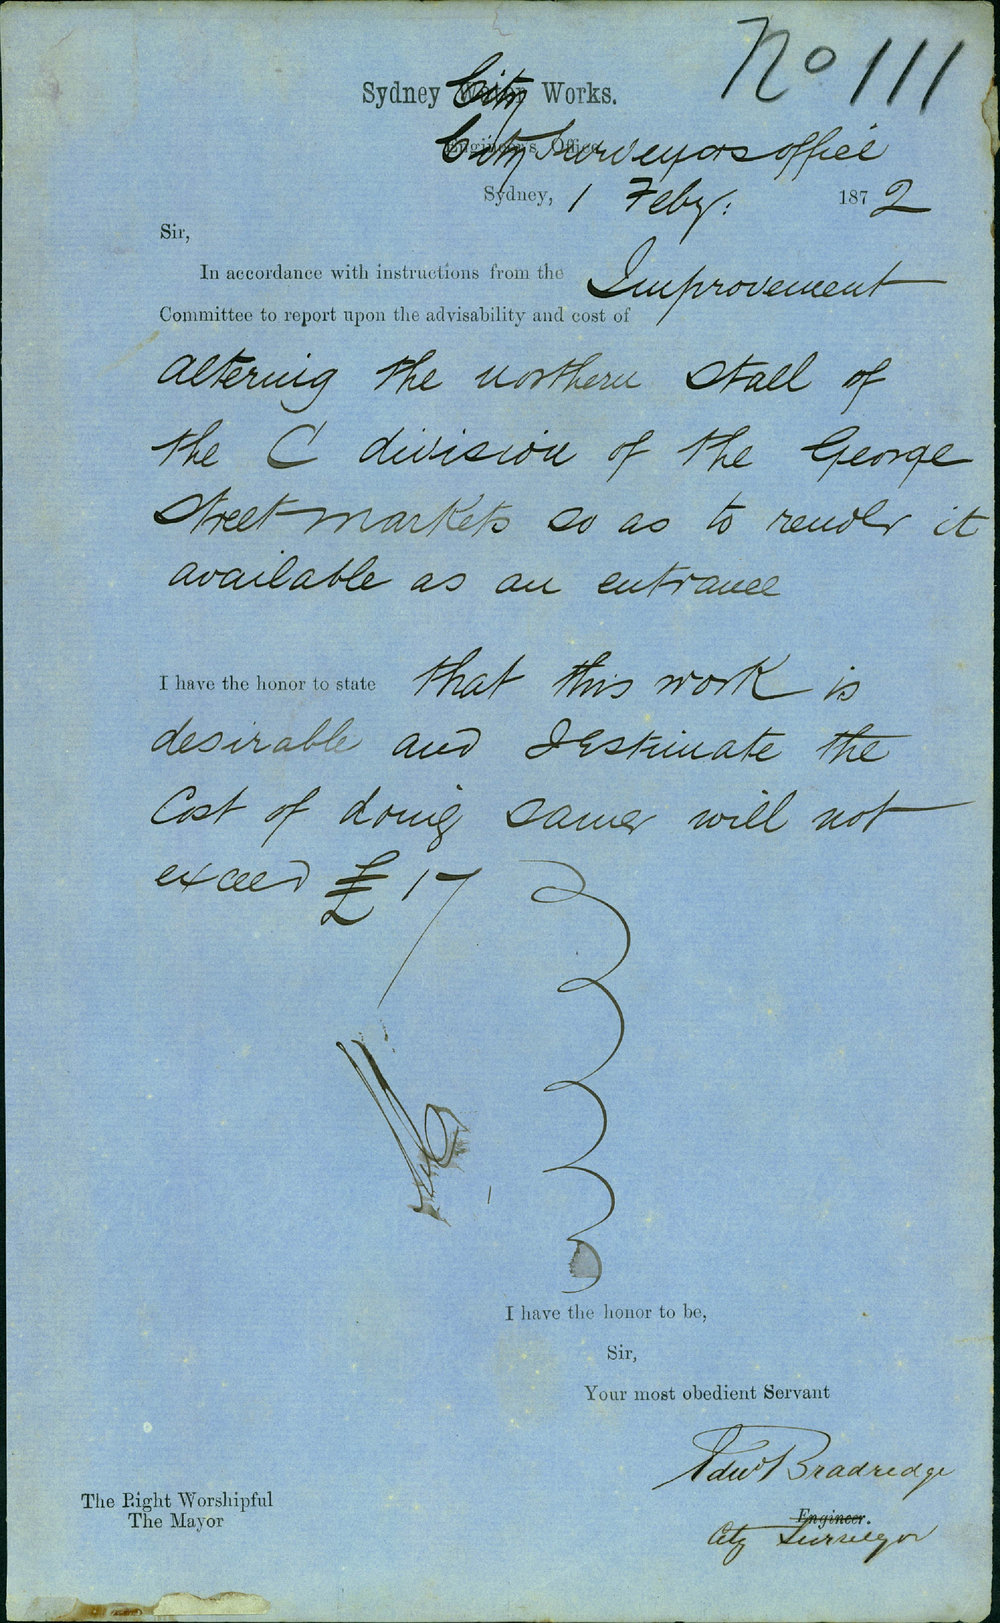 No 111
Sydney City Works.
City Surveyors office
Sydney, 1 Feby: 1872
Sir,
In accordance with instructions from the Improvement
Committee to report upon the advisability and cost of
altering the northern stall of
the C division of the George
Street markets so as to render it
available as an entrance
I have the honor to state that this work is
desirable and I estimate the
Cost of doing same will not
exceed £17
I have the honor to be,
Sir,
Your most obedient Servant
Edwd Bradridge
Engineer.
City Surveyor
The Right Worshipful
The Mayor